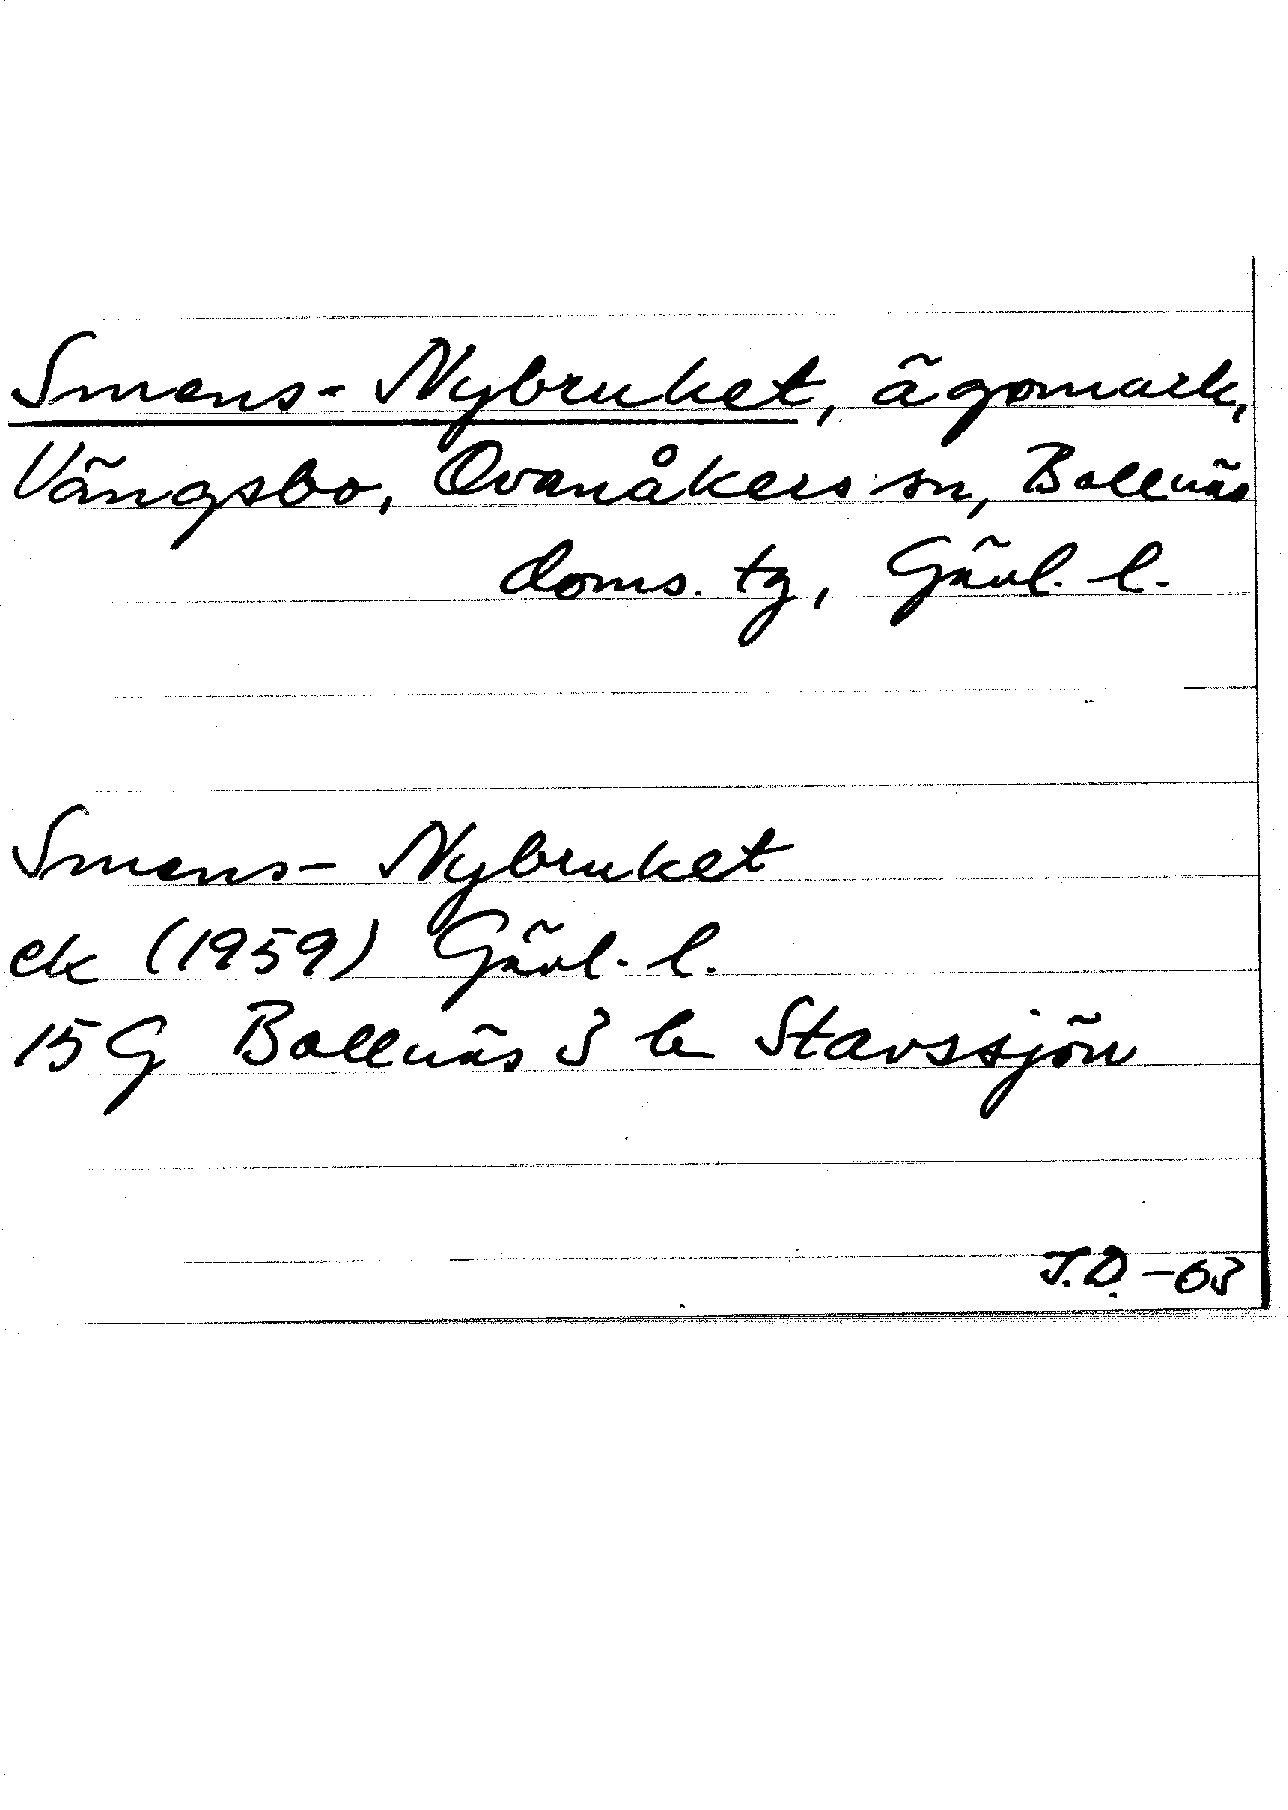 Smens-Nybruket, ägomark,
Vängsbo, Ovanåkers sn, Bollnäs
doms. tg, Gävl. l.
Smens-Nybruket
ek (1959) Gävl. l.
15 G Bollnäs 3 b Stavssjön
J.D. -63